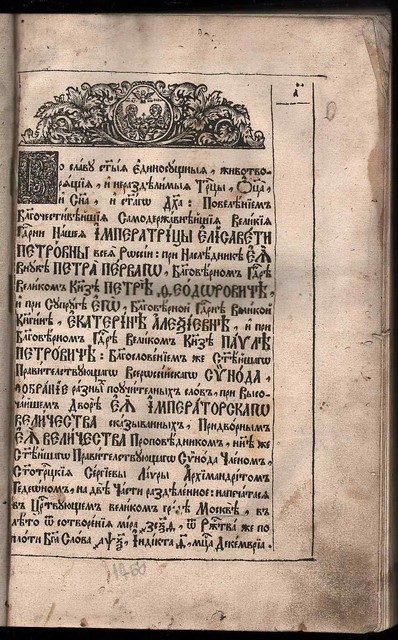 а҃
Во славу ст҃ыѧ Єдиносущныѧ, животво-
рѧщїѧ, и нераздѣлимыѧ Трⷪ҇цы, Ѻц҃а,
и Сн҃а, и ст҃агѡ Дх҃а: Повелѣнїемъ
Благочестивѣйшїѧ Самодержавнѣйшїѧ Великїѧ
Гдⷭ҇рни Нашеѧ ІМПЕРАТРИЦЫ ЄЛІСАВЕТИ
ПЕТРОВНЫ всеѧ Рѡссїи: при Наслѣдникѣ ЄѦ
Внукѣ ПЕТРА ПЕРВАГѠ, Благовѣрномъ Гдⷭ҇рѣ
Великомъ Кнѧзѣ ПЕТРѢ ѲЕОДѠРОВИЧѢ,
и при Супругѣ ЄГѠ, Благовѣрной Гдⷭ҇рнѣ Великой
Кнѧгинѣ, ЄКАТЕРІНѢ АЛЕѮІЕВНѢ, и при
Благовѣрномъ Гдⷭ҇рѣ Великомъ Кнѧзѣ ПАУЛѢ
ПЕТРОВИЧѢ: Благословенїемъ же Ст҃ѣйшагѡ
Правителствующагѡ Всерѡссїйскагѡ СѴНОДА,
СОБРАНІЕ разныⷯ поучителныхъ словъ, при Высо-
чайшемъ Дворѣ ЄѦ ІМПЕРАТОРСКАГѠ
ВЕЛИЧЕСТВА сказыванныхъ, Придворнымъ
ЄѦ ВЕЛИЧЕСТВА Проповѣдникомъ, нн҃ѣ же
Ст҃ѣйшагѡ Правителствующагѡ Сѵнода Членомъ,
Ст҃отрⷪ҇цкїѧ Сергїевы Лаѵры Архїмандрїтомъ
Гедеѡномъ, на двѣ Части раздѣленное: напечатасѧ
въ Црⷭ҇твующемъ великомъ градѣ Москвѣ, въ
лѣто ѿ сотворенїѧ мїра ҂зсѯд, ѿ Ржⷭ҇тва же по
плоти Бг҃а Слова ҂аѱ҃, Індїкта д҃, мцⷭ҇а Декемврїа.